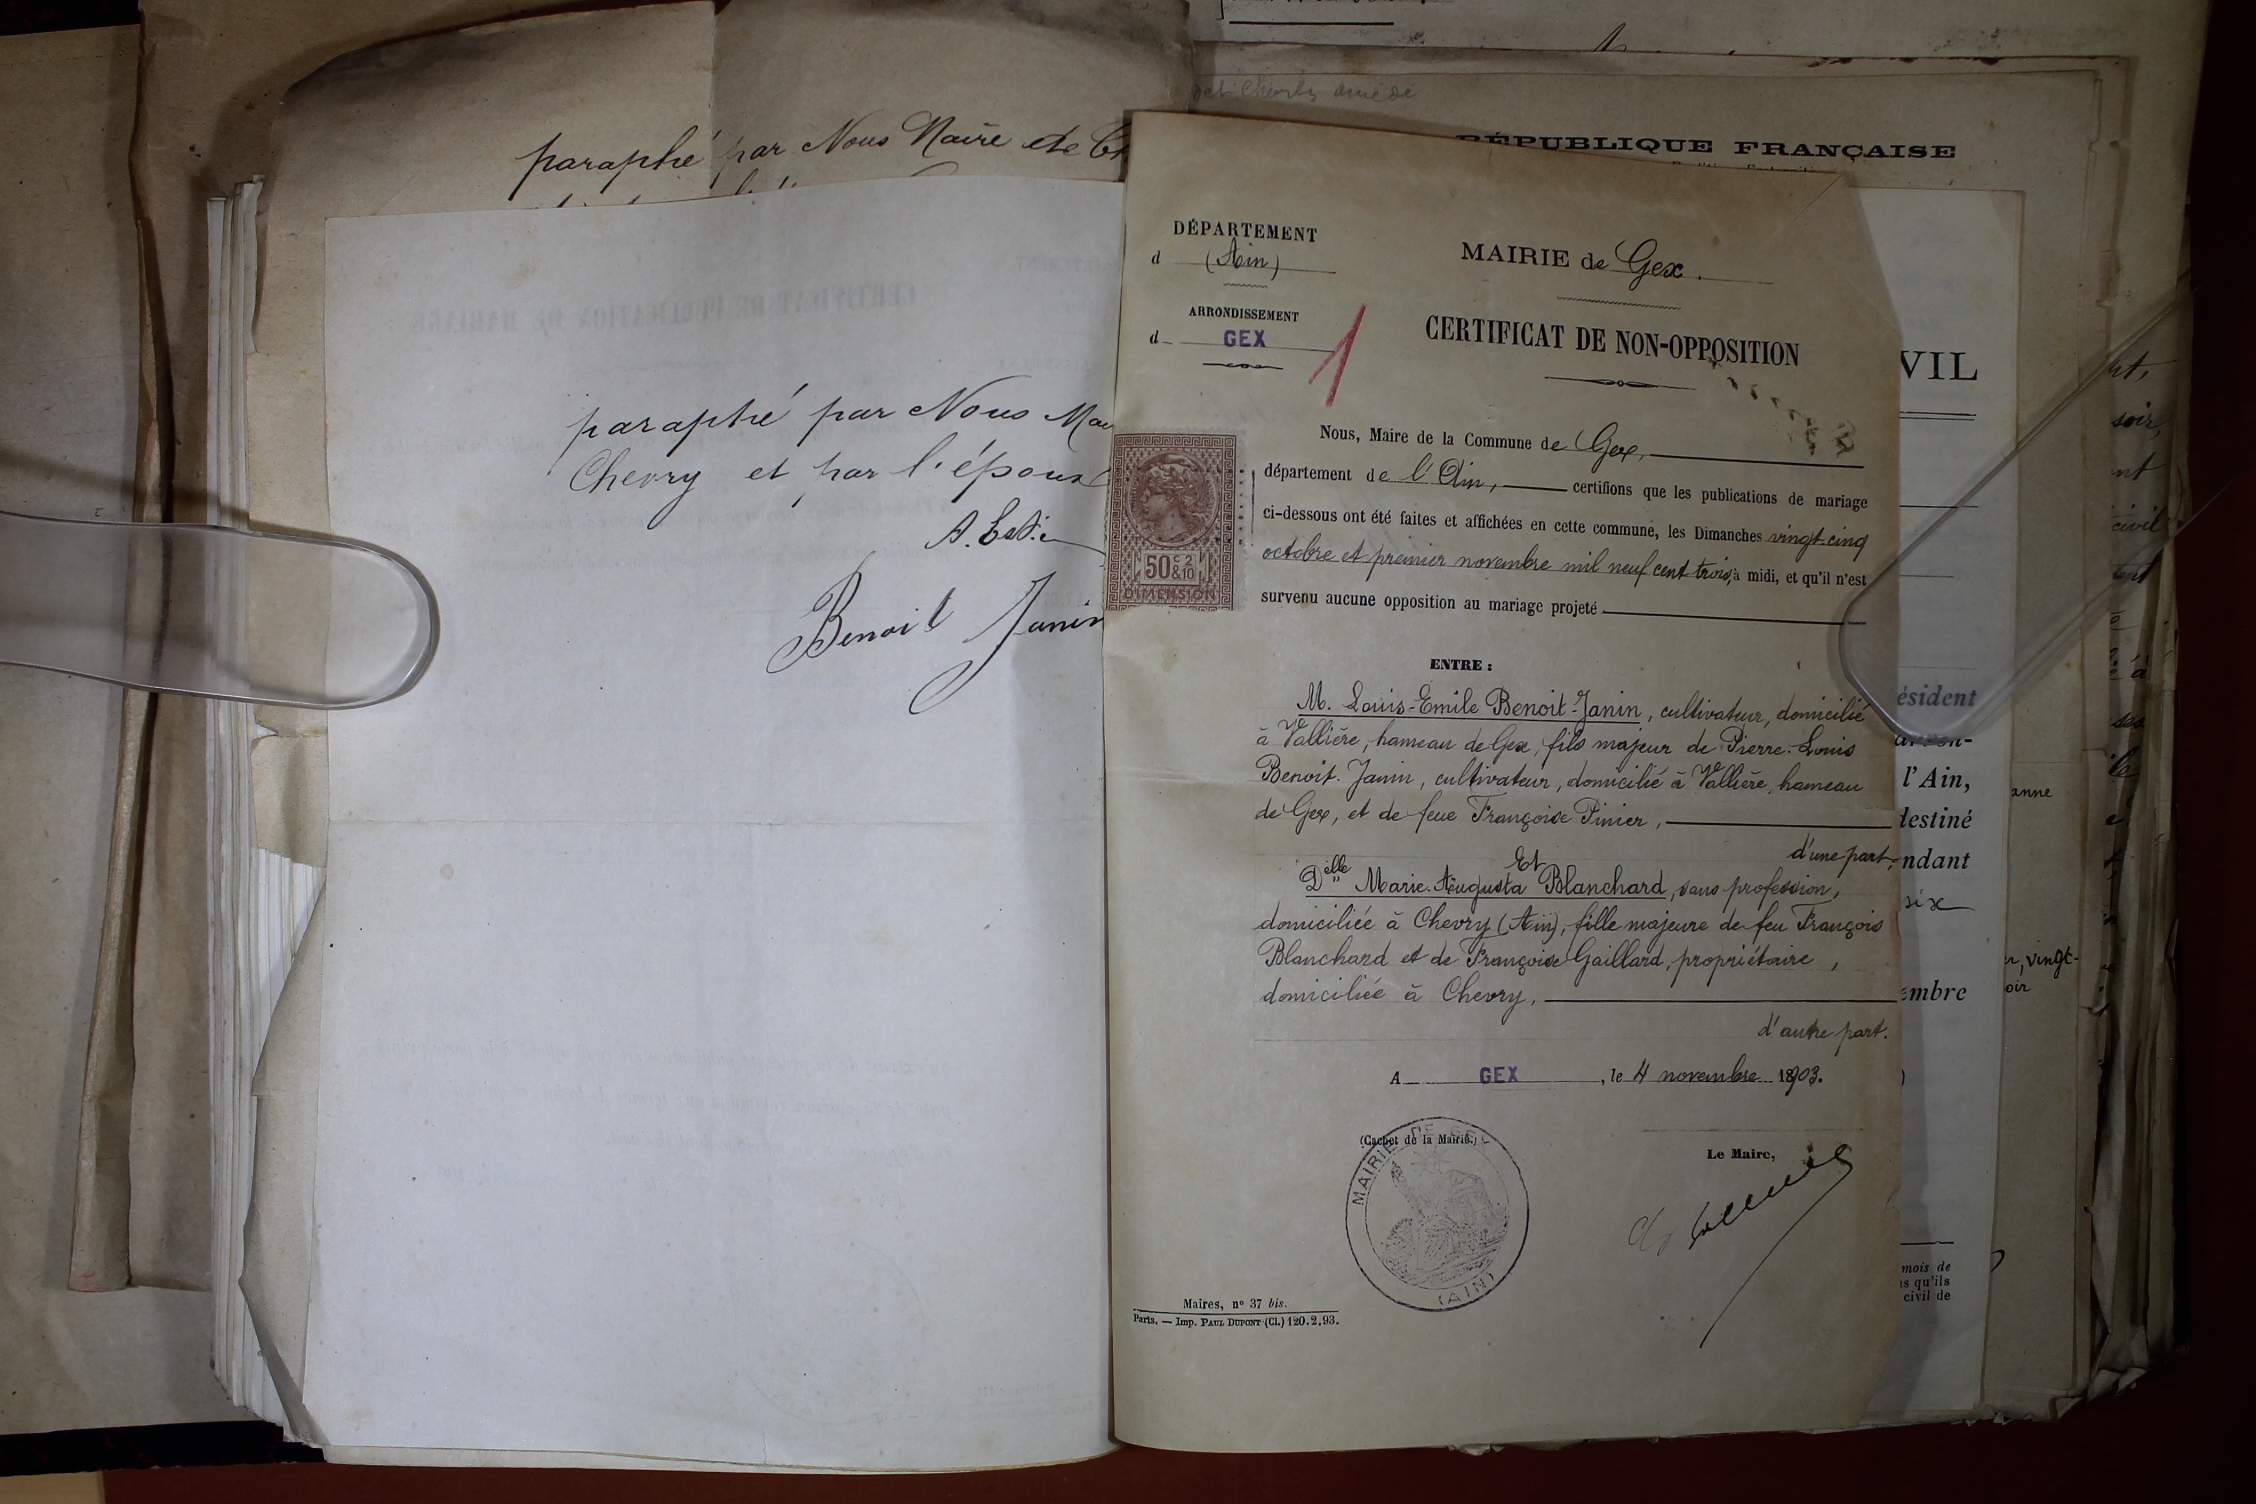 paraphé par Nous Maire de
paraphé par Nous
Chevry et par l'épous
Benoit Janin
RÉPUBLIQUE FRANÇAISE
DÉPARTEMENT
d (Ain)
ARRONDISSEMENT
d GEX
1
MAIRIE de Gex.
CERTIFICAT DE NON-OPPOSITION
50c 2/10
&
DIMENSION
Nous, Maire de la Commune de Gex,
département de l'Ain, certifions que les publications de mariage
ci-dessous ont été faites et affichées en cette commune, les Dimanches vingt-cinq
octobre et premier novembre mil neuf cent trois, à midi, et qu'il n'est
survenu aucune opposition au mariage projeté
ENTRE :
M. Louis-Emile Benoit-Janin, cultivateur, domicilié
à Vallière, hameau de Gex, fils majeur de Pierre-Louis
Benoit-Janin, cultivateur, domicilié à Vallière, hameau
de Gex, et de feue Françoise Pinier,
d'une part,
Et
Delle Marie-Augusta Blanchard, sans profession,
domiciliée à Chevry (Ain), fille majeure de feu François
Blanchard et de Françoise Gaillard, propriétaire,
domiciliée à Chevry,
d'autre part.
A GEX, le 4 novembre 1903.
(Cachet de la Mairie.)
MAIRIE DE GEX
(AIN)
Le Maire,
Maires, nº 37 bis.
Paris. — Imp. PAUL DUPONT (Cl.) 120.2.93.
VIL
ésident
l'Ain,
destiné
ndant
six
embre
mois de
s qu'ils
civil de
anne
vingt-
oir
soir,
civil